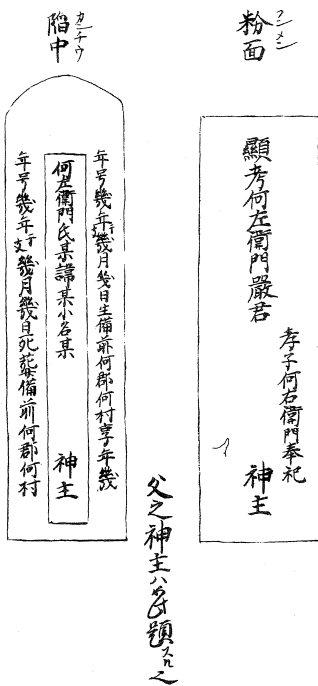 粉面
フンメン
顯考何左衛門嚴君 神主
孝子何右衛門奉祀
父之神主ハ如此題スル也
陥中
カンチウ
年号幾年干支幾月幾日生備前何郡何村享年幾
何左衛門氏某諱某小名某 神主
年号幾年干支幾月幾日死葬備前何郡何村